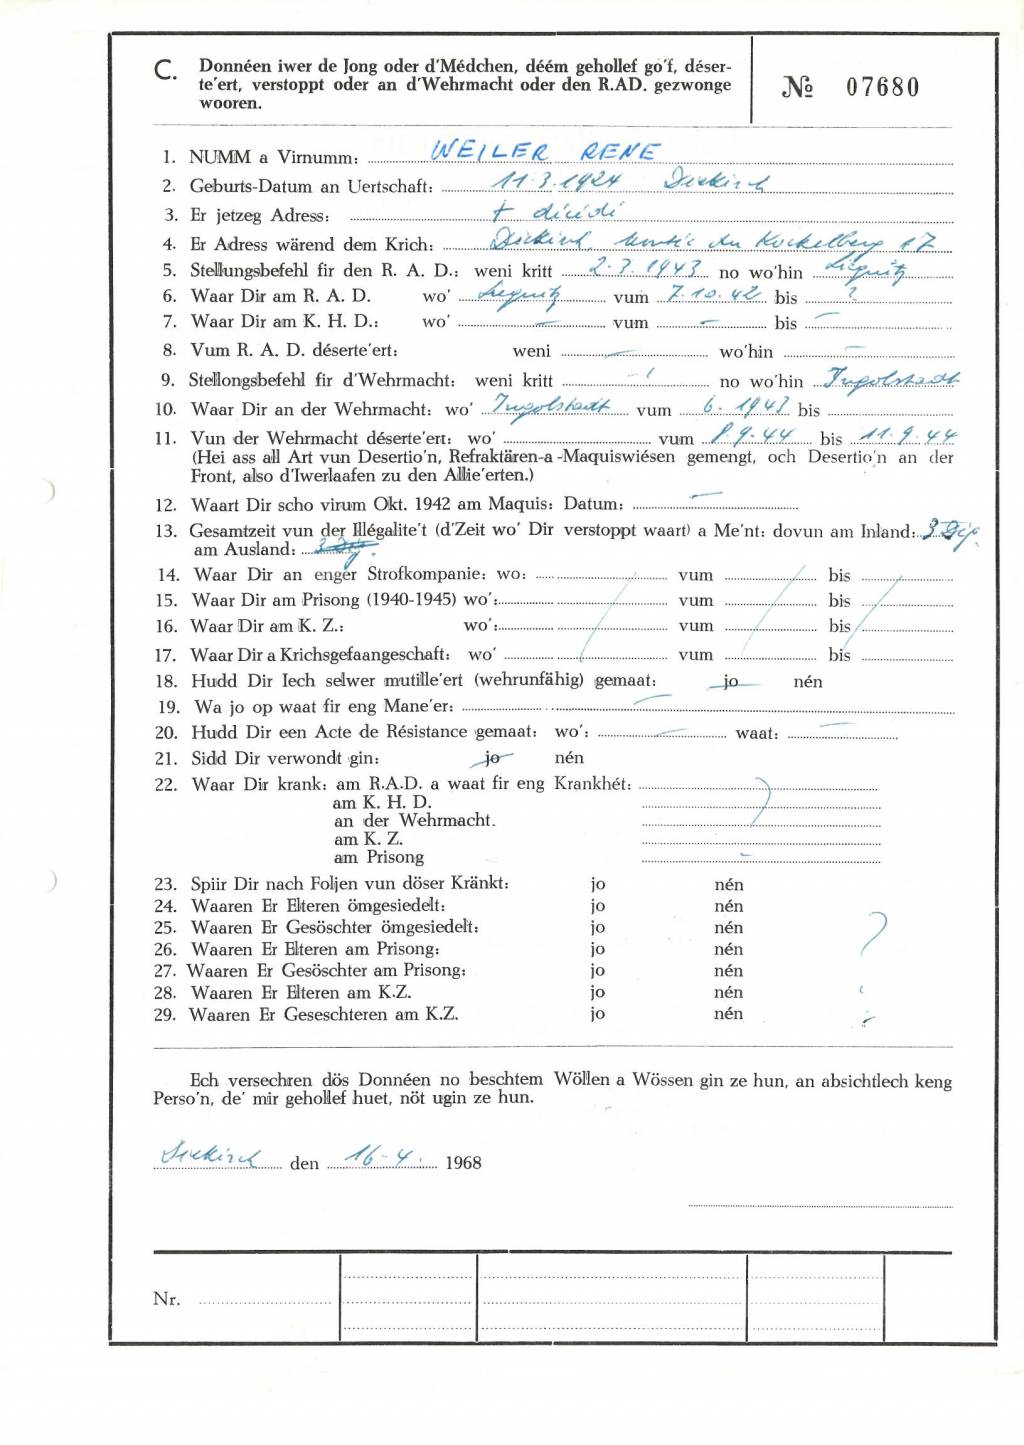 C. Donnéen iwer de Jong oder d'Médchen, déém gehollef go'f, déser-
te'ert, verstoppt oder an d'Wehrmacht oder den R.AD. gezwonge
wooren.
№ 07680
1. NUMM a Virnumm: WEILER RENE
2. Geburts-Datum an Uertschaft: 11.3.1924 Diekirch
3. Er jetzeg Adress: † décédé
4. Er Adress wärend dem Krich: Diekirch, montée du Kockelberg 17
5. Stellungsbefehl fir den R. A. D.: weni kritt 2.3.1943 no wo'hin Liegnitz
6. Waar Dir am R. A. D. wo' Liegnitz vum 7.10.42 bis ?
7. Waar Dir am K. H. D.: wo' — vum — bis —
8. Vum R. A. D. déserte'ert: weni — wo'hin —
9. Stellongsbefehl fir d'Wehrmacht: weni kritt no wo'hin Ingolstadt
10. Waar Dir an der Wehrmacht: wo' Ingolstadt vum 6. 1943 bis
11. Vun der Wehrmacht déserte'ert: wo' vum 8.9.44 bis 11.9.44
(Hei ass all Art vun Desertio'n, Refraktären-a-Maquiswiésen gemengt, och Desertio'n an der
Front, also d'Iwerlaafen zu den Allie'erten.)
12. Waart Dir scho virum Okt. 1942 am Maquis: Datum: —
13. Gesamtzeit vun der Illégalite't (d'Zeit wo' Dir verstoppt waart) a Me'nt: dovun am Inland: 3
am Ausland:
14. Waar Dir an enger Strofkompanie: wo: vum bis
15. Waar Dir am Prisong (1940-1945) wo': vum bis
16. Waar Dir am K. Z.: wo': vum bis
17. Waar Dir a Krichsgefaangeschaft: wo' vum bis
18. Hudd Dir Iech selwer mutille'ert (wehrunfähig) gemaat: jo nén
19. Wa jo op waat fir eng Mane'er: —
20. Hudd Dir een Acte de Résistance gemaat: wo': — waat: —
21. Sidd Dir verwondt gin: jo nén
22. Waar Dir krank: am R.A.D. a waat fir eng Krankhét:
am K. H. D.
an der Wehrmacht.
am K. Z.
am Prisong
23. Spiir Dir nach Foljen vun döser Kränkt: jo nén
24. Waaren Er Elteren ömgesiedelt: jo nén
25. Waaren Er Gesöschter ömgesiedelt: jo nén
26. Waaren Er Elteren am Prisong: jo nén
27. Waaren Er Gesöschter am Prisong: jo nén
28. Waaren Er Elteren am K.Z. jo nén
29. Waaren Er Geseschteren am K.Z. jo nén
Ech versechren dös Donnéen no beschtem Wöllen a Wössen gin ze hun, an absichtlech keng
Perso'n, de' mir gehollef huet, nöt ugin ze hun.
Diekirch den 16-4. 1968
Nr.